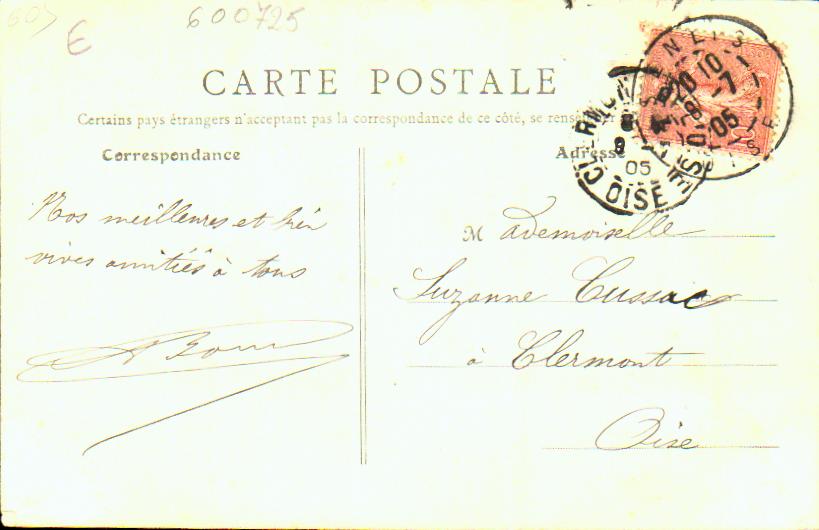 600725
€
CARTE POSTALE
Certains pays étrangers n'acceptant pas la correspondance de ce côté, se
Correspondance
Adresse
Nos meilleures et bien
vives amitiés à tous
Mademoiselle
Suzanne Cussac
à Clermont
Oise
10
-7
05
05
OISE